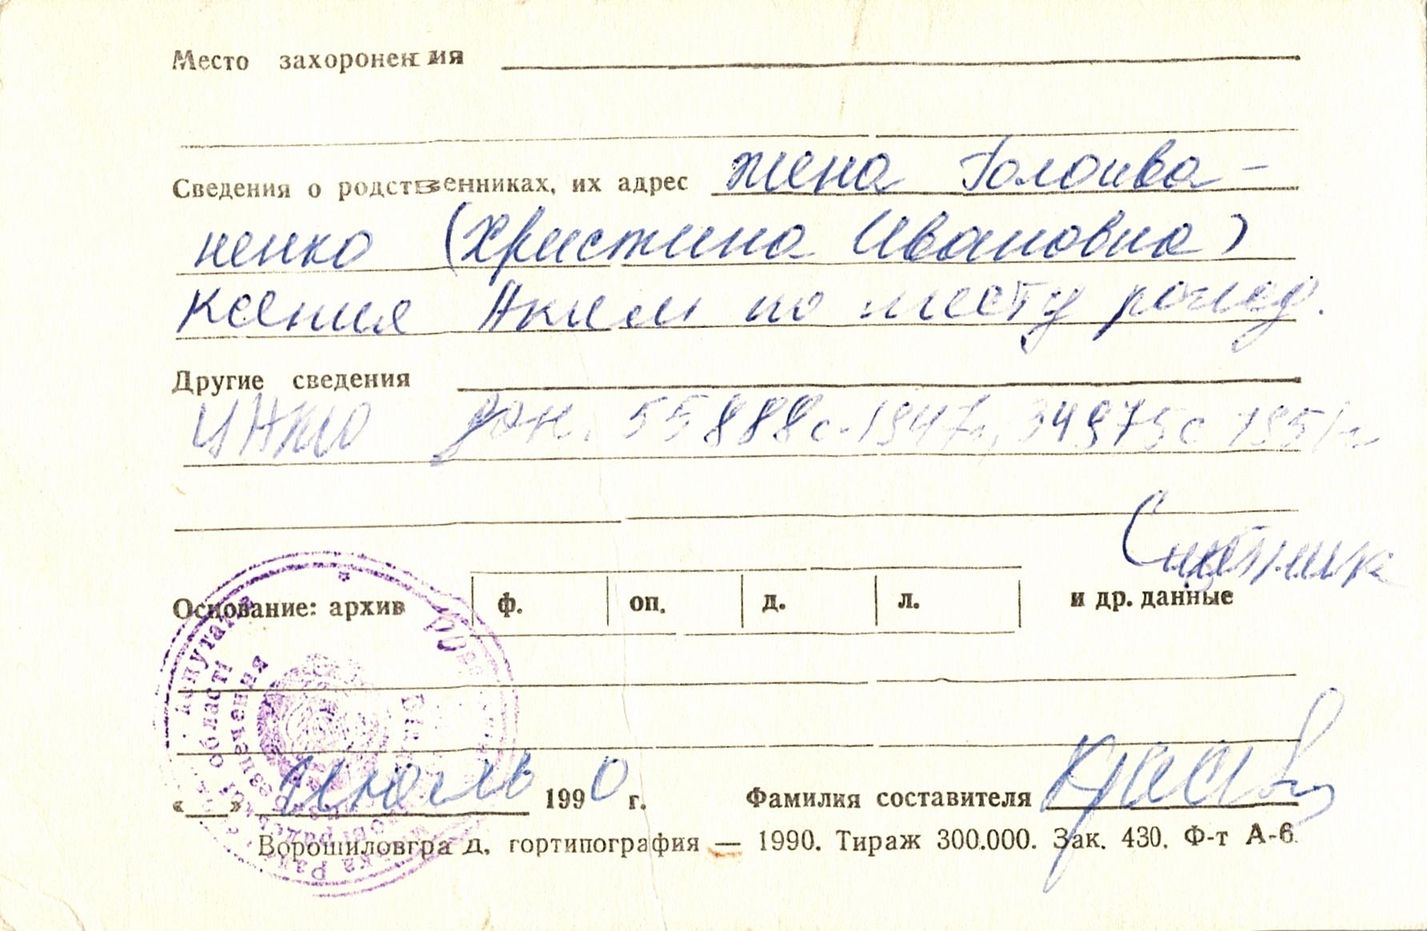 Место захоронения
Сведения о родственниках, их адрес жена Голоива-
ненко (Христина Ивановна)
Ксения Аким по месту рожд.
Другие сведения
ЦАМО дон. 55888с-1947г, 34975с 1951г
Основание: архив ф. оп. д. л. и др. данные
« » июль 1990 г. Фамилия составителя
Ворошиловград, гортипография — 1990. Тираж 300.000. Зак. 430. Ф-т А-6.